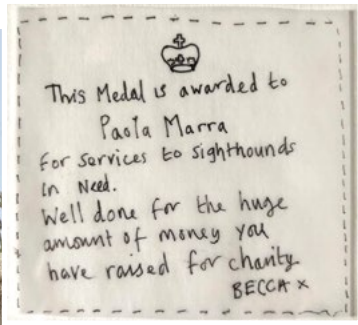 This Medal is awarded to
Paola Marra
for services to sighthounds
in Need.
Well done for the huge
amount of money you
have raised for charity
BECCA x